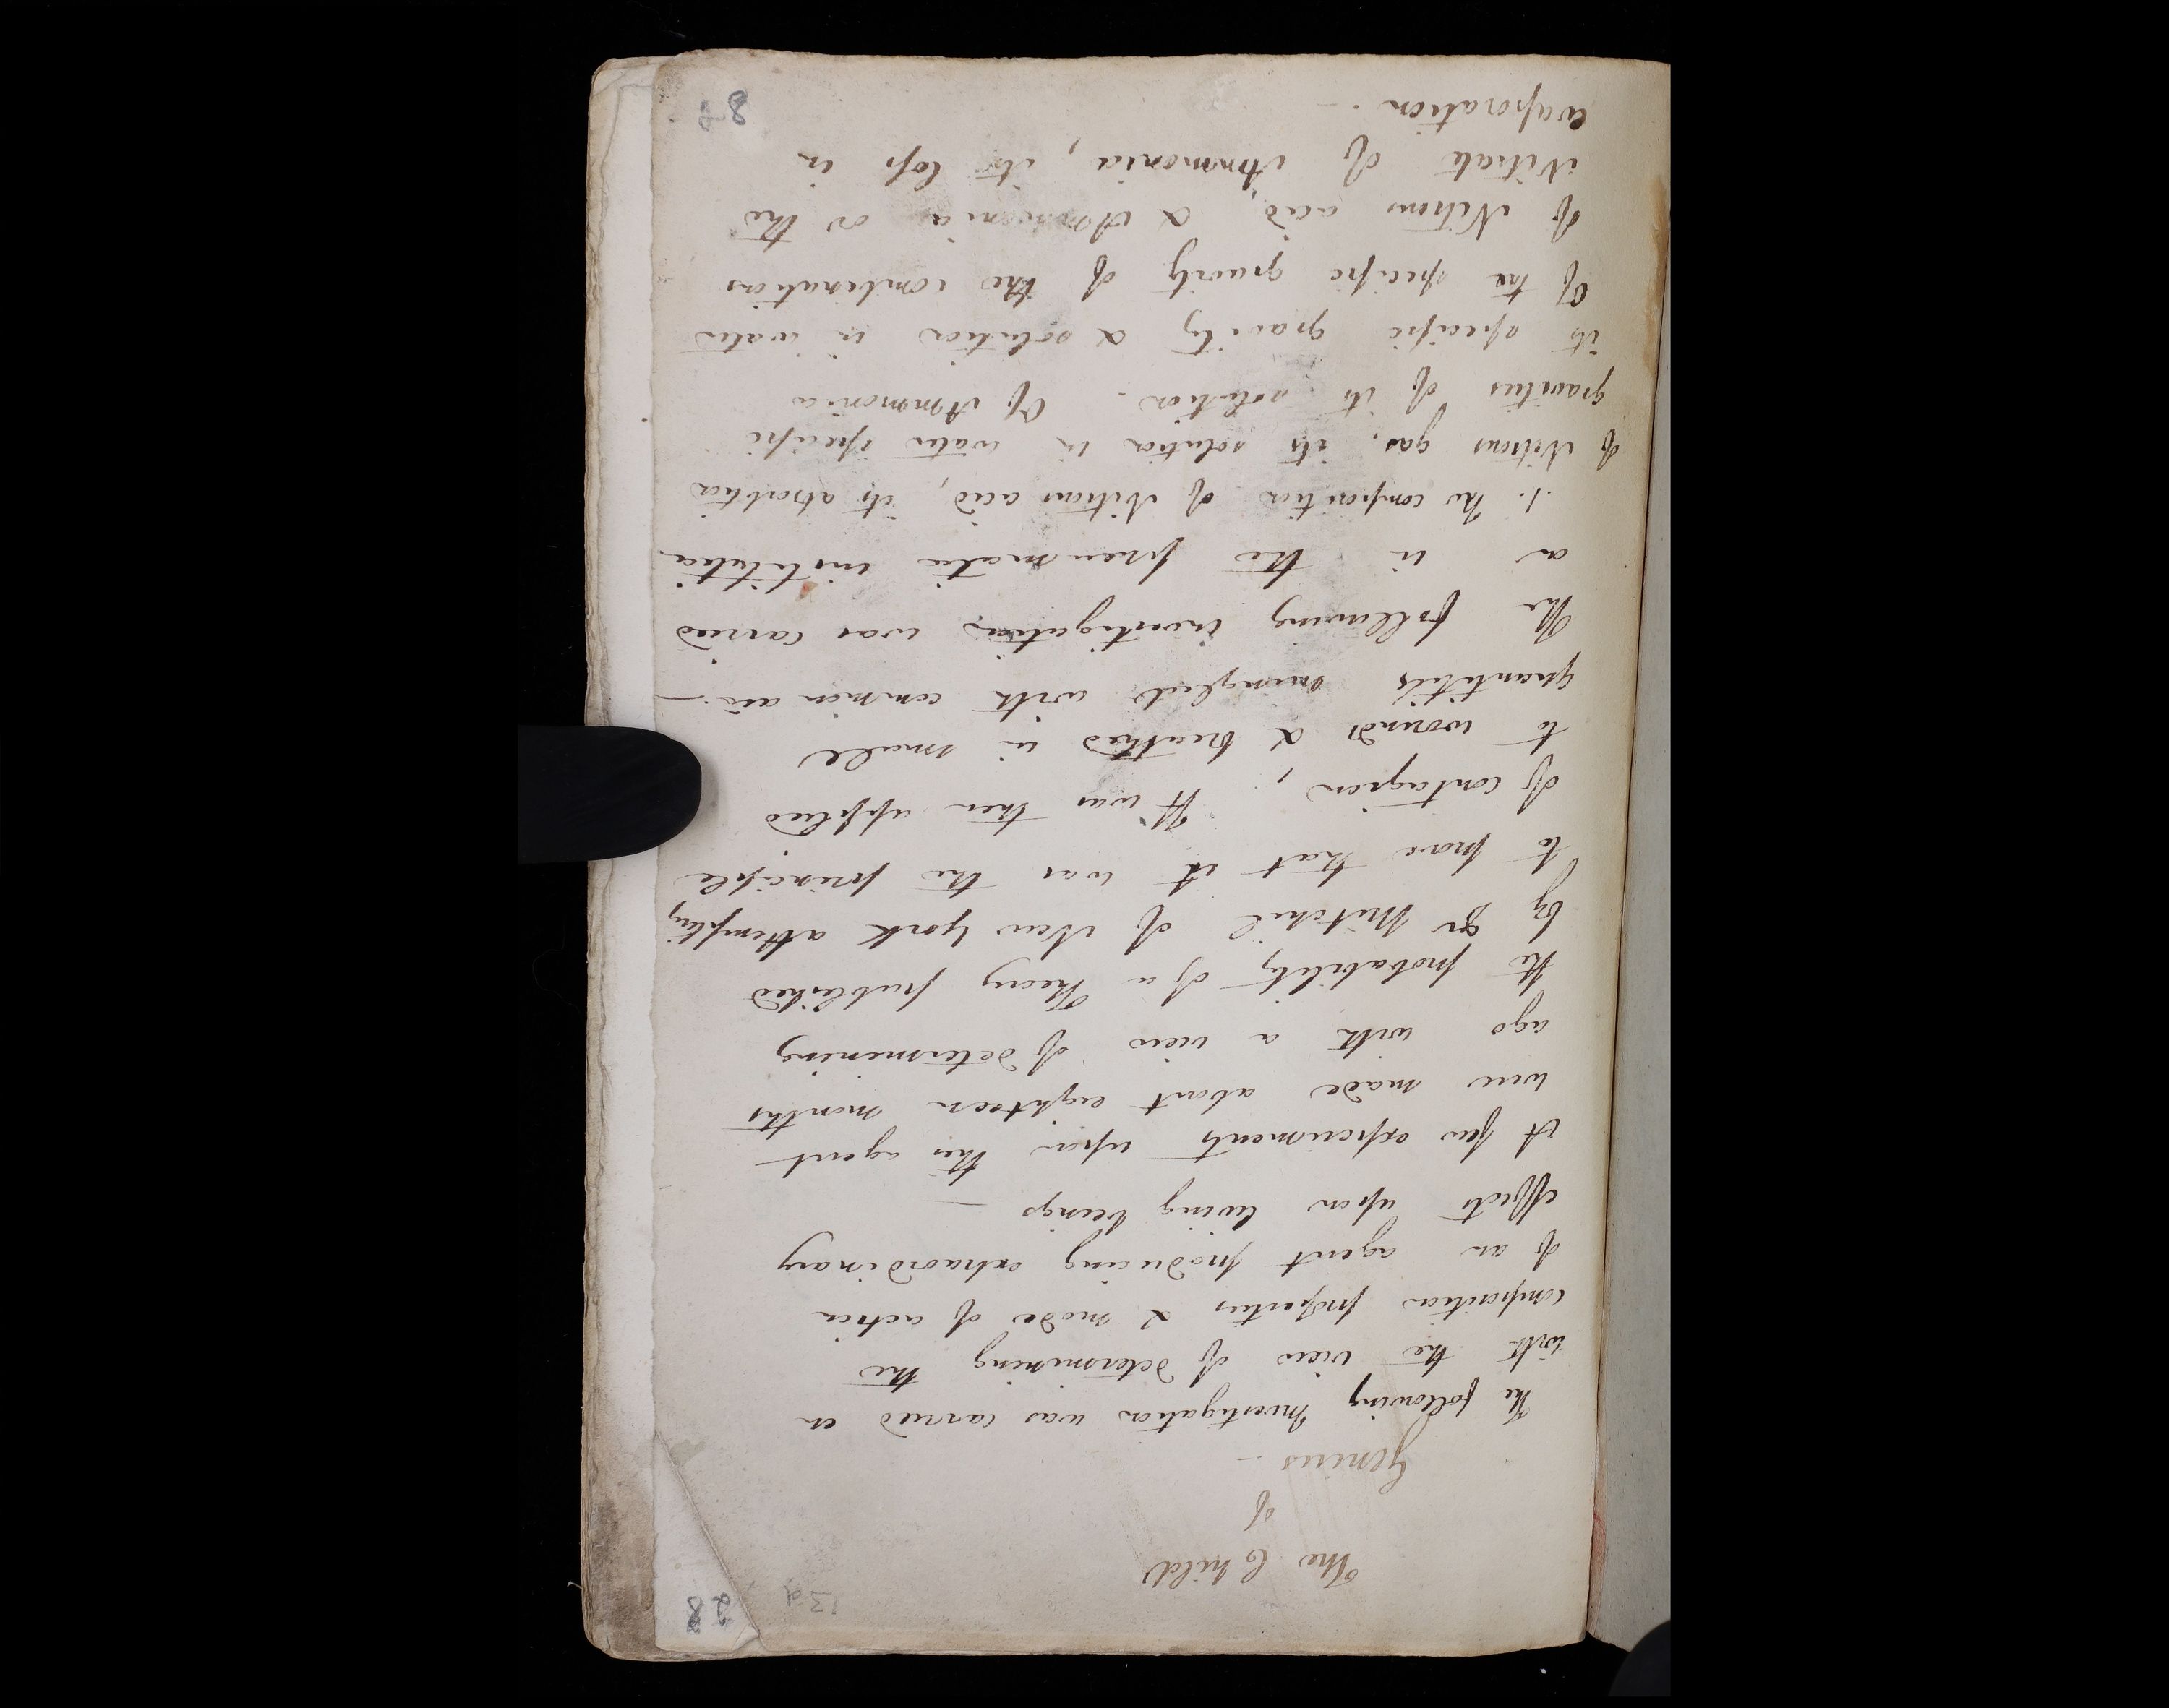 The Child
of
Genius -
The following Investigation was carried on
with the view of determining the
composition properties & mode of action
of an agent producing extraordinary
effects upon living beings —
A few experiments upon this agent
were made about eighteen months
ago with a view of determining
the probability of a Theory published
by Dr Mitchel of New York attempting
to prove that it was the principle
of contagion, It was then applied
to wounds & breathed in small
quantities mingled with common air. —
The following investigation was carried
on in the pneumatic institution
1. The composition of Nitrous acid, its absorbtion
of Nitrous gas. its solution in water specific
gravities of its solution. Of Ammonia
its specific gravity & solution in water
Of the specific gravity of the combinations
of Nitrous acid, & Ammonia or the
Nitrate of Ammonia, its loss in
evaporation. —
13d
28
82